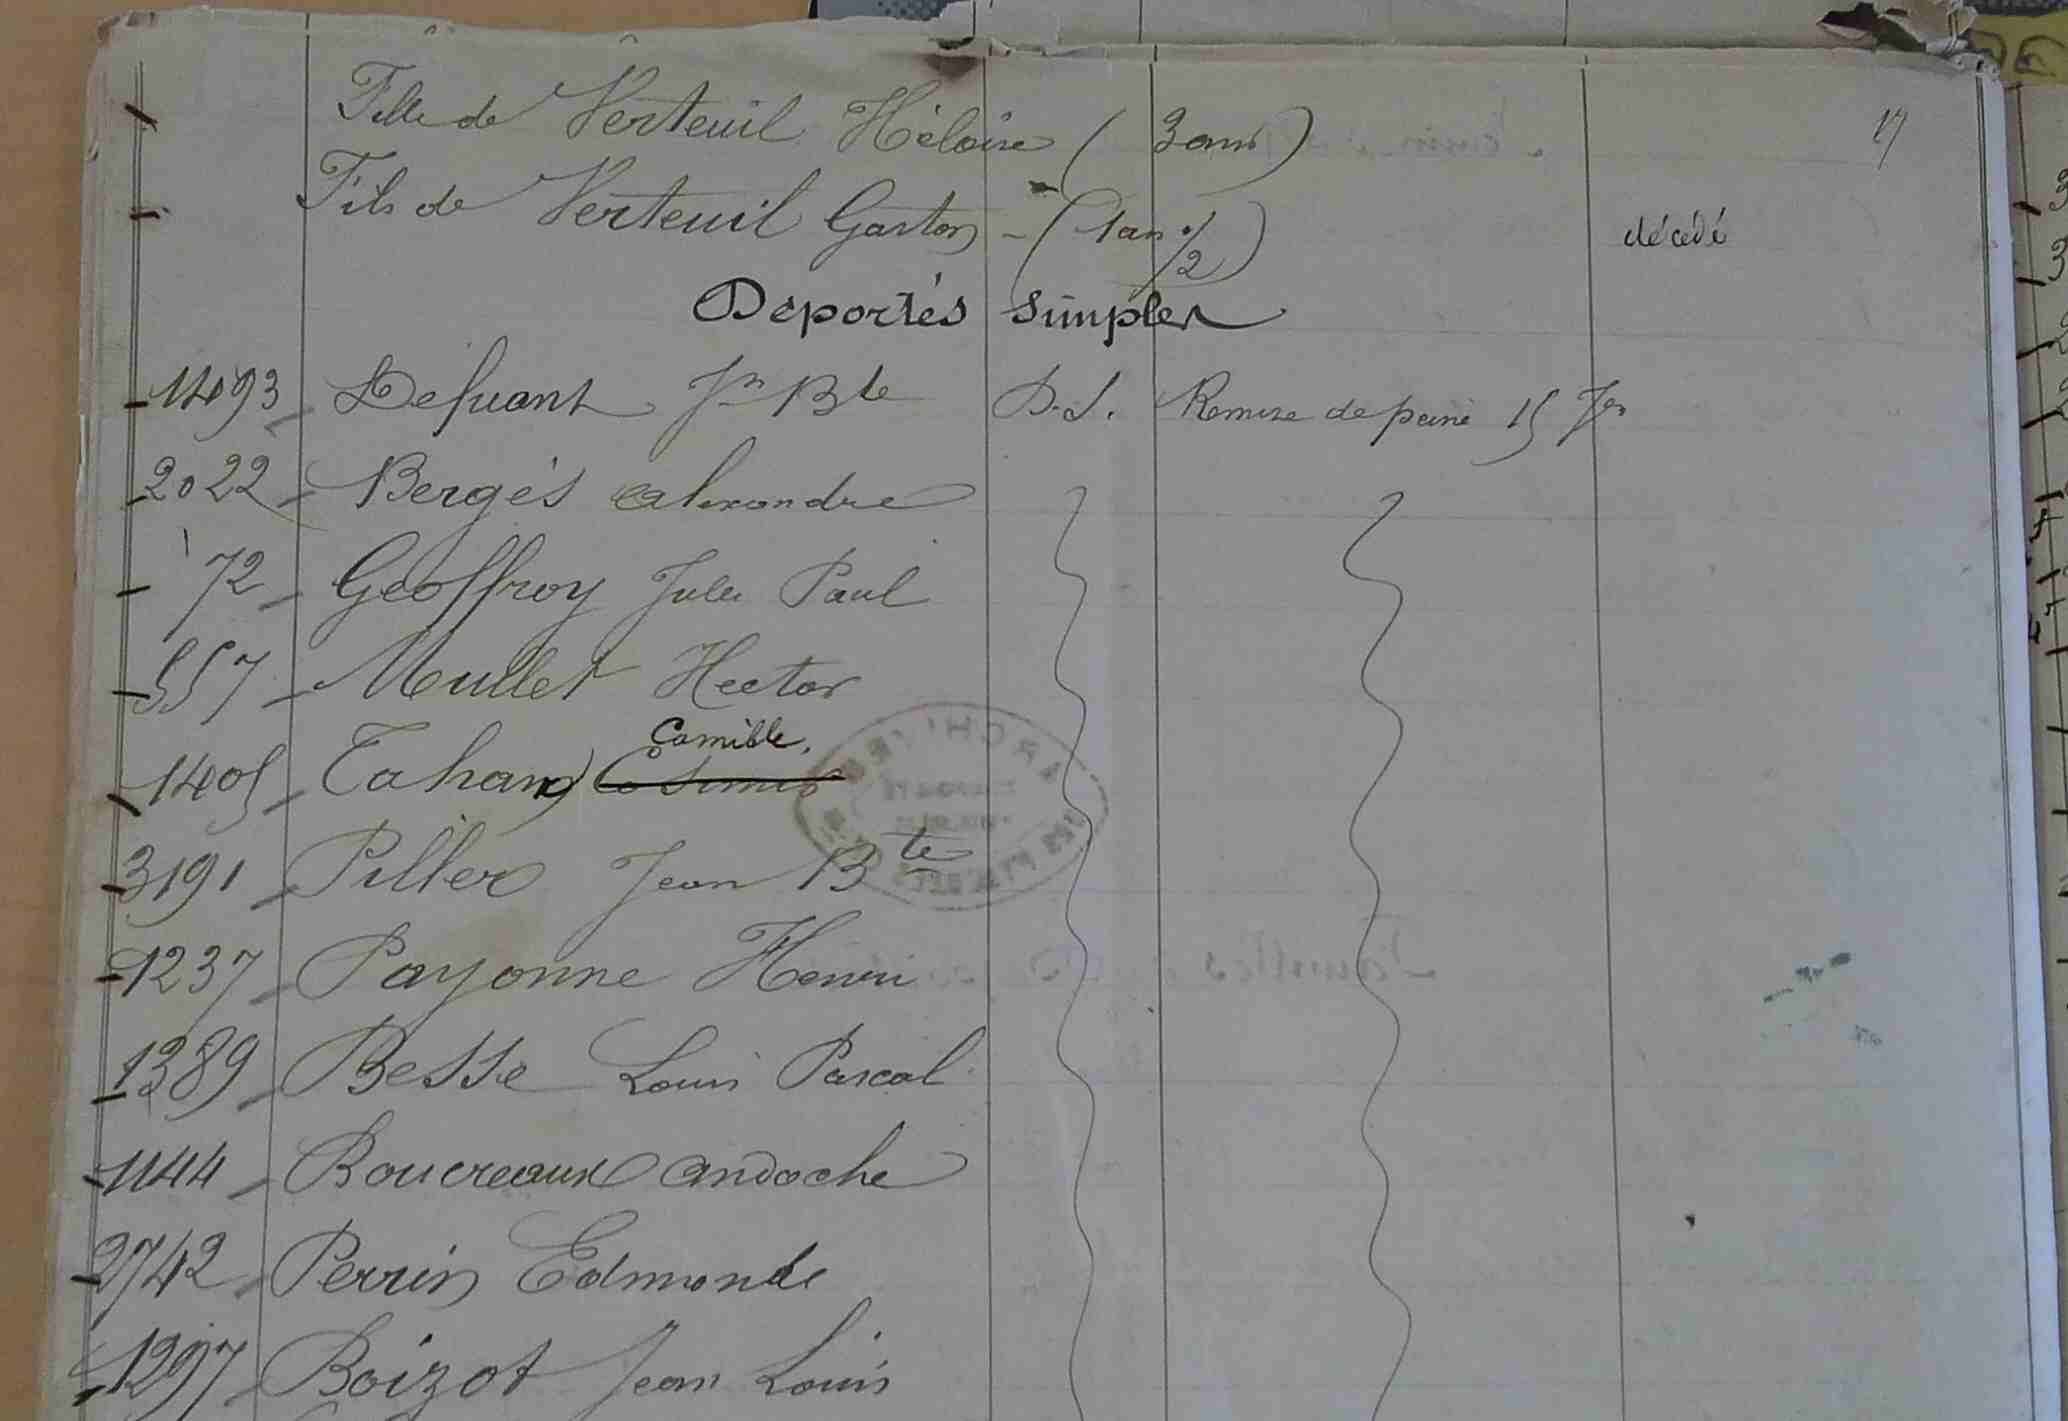 17
Fille de Verteuil Héloïse (3 ans)
Fils de Verteuil Gaston - (1 an 1/2) décédé
Déportés simples
1493 Défuant Jn Bte D.S. Remise de peine 15 Jer
2022 Bergès alexandre
72 Geoffroy Jules Paul
557 Mullet Hector
Camille.
1405 Cahan
3191 Piller Jean Bte
1237 Payonne Henri
1389 Besse Louis Pascal
1144 Boucreaux andoche
2742 Perrin Edmonde
1297 Boizot Jean Louis